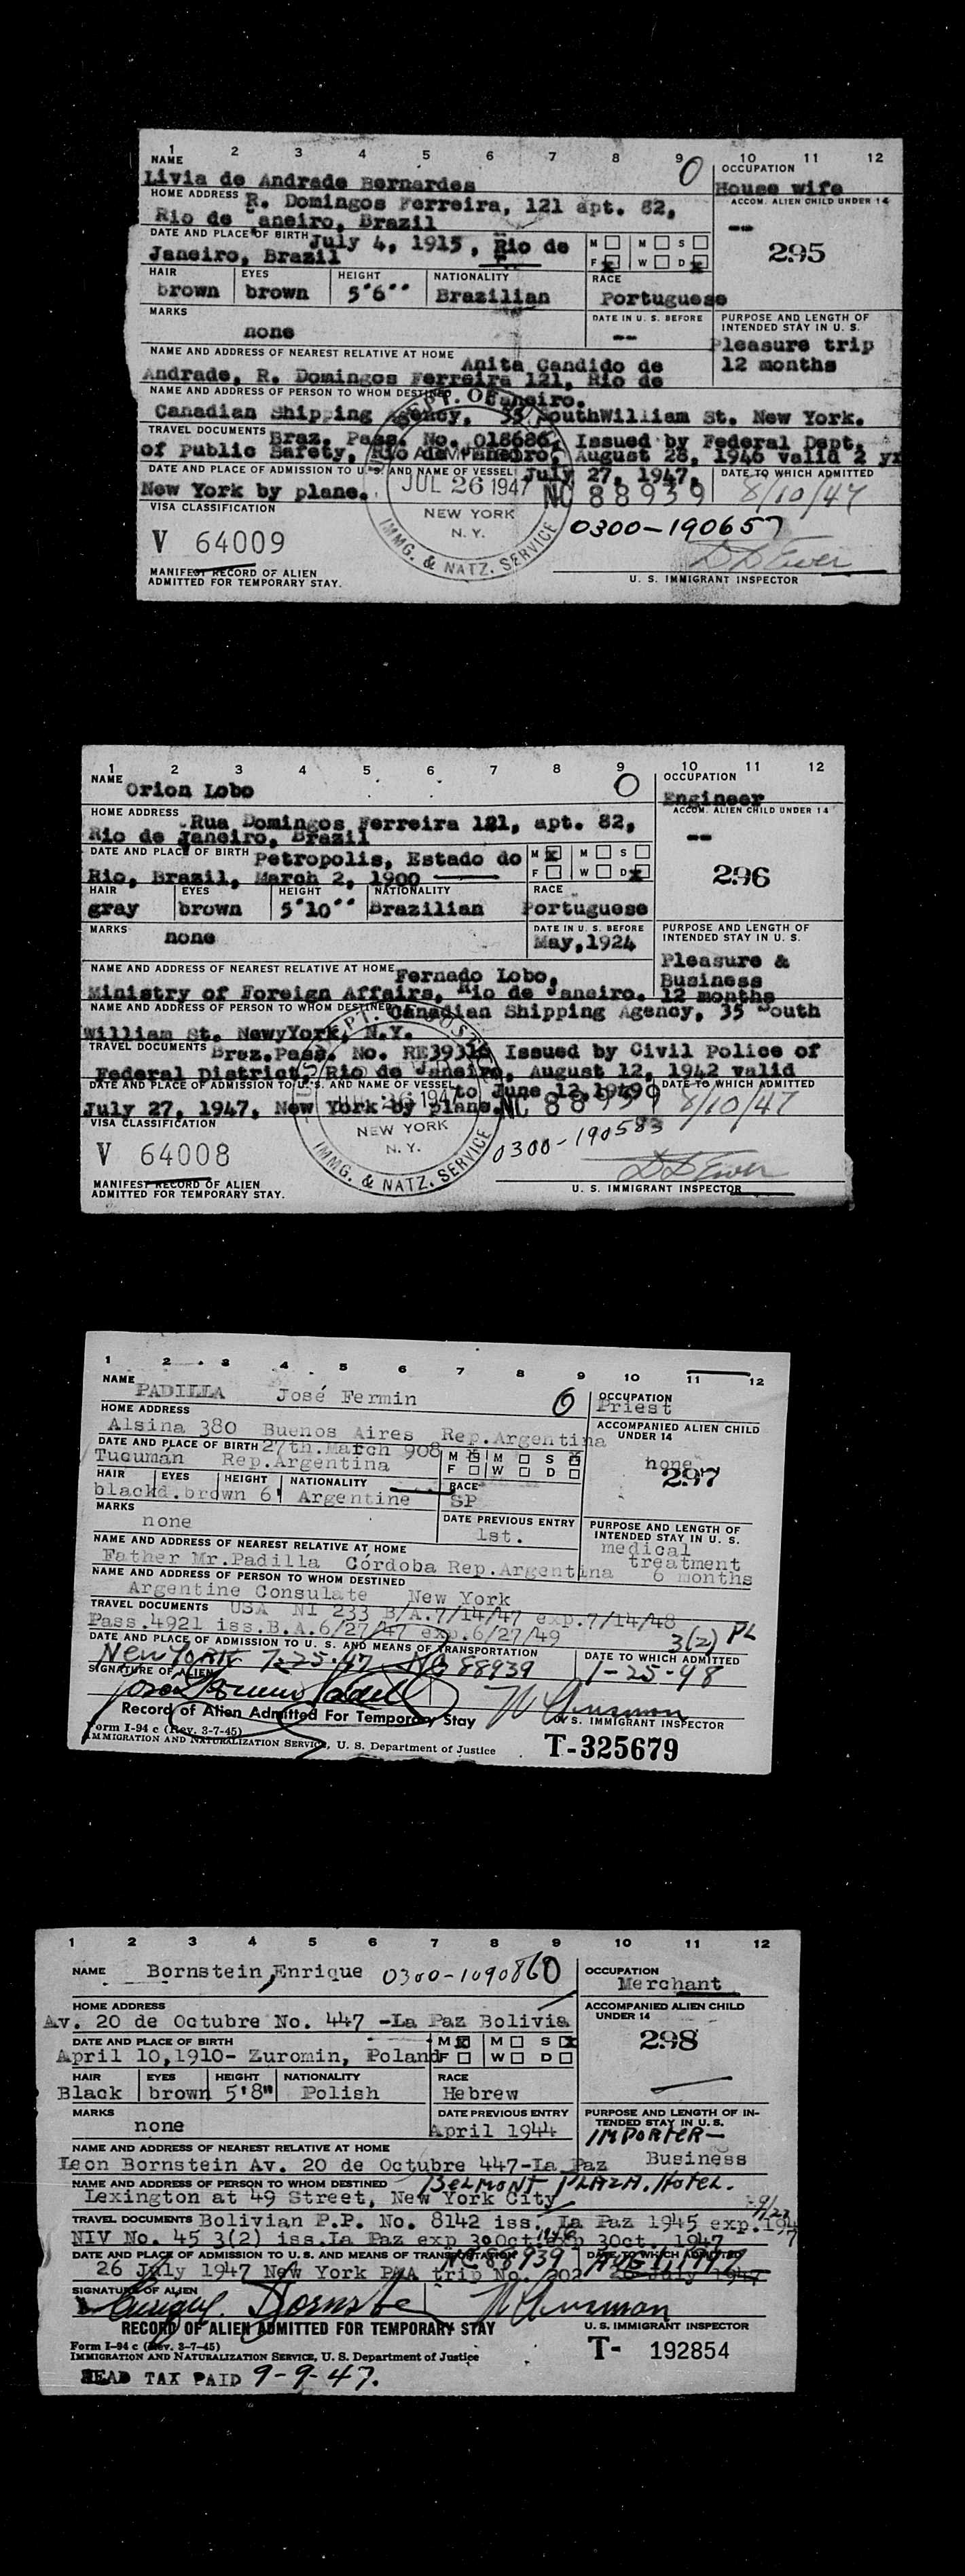 1 2 3 4 5 6 7 8 9 10 11 12
NAME O OCCUPATION
Livia de Andrade Bernardes House wife
HOME ADDRESS R. Domingos Ferreira, 121 apt. 82, ACCOM. ALIEN CHILD UNDER 14
Rio de Janeiro, Brazil --
DATE AND PLACE OF BIRTH July 4, 1915, Rio de M M S 295
Janeiro, Brazil F x W D x
HAIR EYES HEIGHT NATIONALITY RACE
brown brown 5'6'' Brazilian Portuguese
MARKS DATE IN U. S. BEFORE PURPOSE AND LENGTH OF INTENDED STAY IN U. S.
none -- Pleasure trip
NAME AND ADDRESS OF NEAREST RELATIVE AT HOME Anita Candido de 12 months
Andrade, R. Domingos Ferreira 121, Rio de
NAME AND ADDRESS OF PERSON TO WHOM DESTINED Janeiro.
Canadian Shipping Agency, 35 SouthWilliam St. New York.
TRAVEL DOCUMENTS Braz. Pass. No. 018686, Issued by Federal Dept.
of Public Safety, Rio de Janeiro, August 28, 1946 valid 2 yr
DATE AND PLACE OF ADMISSION TO U. S. AND NAME OF VESSEL July 27, 1947, DATE TO WHICH ADMITTED
New York by plane. JUL 26 1947 NC 88939 8/10/47
VISA CLASSIFICATION NEW YORK N. Y. 0300-190657
V 64009 IMMG. & NATZ. SERVICE
MANIFEST RECORD OF ALIEN
ADMITTED FOR TEMPORARY STAY. U. S. IMMIGRANT INSPECTOR
1 2 3 4 5 6 7 8 9 10 11 12
NAME Orion Lobo O OCCUPATION
Engineer
HOME ADDRESS Rua Domingos Ferreira 121, apt. 82, ACCOM. ALIEN CHILD UNDER 14
Rio de Janeiro, Brazil --
DATE AND PLACE OF BIRTH Petropolis, Estado do M x M S 296
Rio, Brazil, March 2, 1900 F W D x
HAIR EYES HEIGHT NATIONALITY RACE
gray brown 5'10'' Brazilian Portuguese
MARKS DATE IN U. S. BEFORE PURPOSE AND LENGTH OF INTENDED STAY IN U. S.
none May, 1924 Pleasure &
NAME AND ADDRESS OF NEAREST RELATIVE AT HOME Fernado Lobo, Business
Ministry of Foreign Affairs, Rio de Janeiro. 12 months
NAME AND ADDRESS OF PERSON TO WHOM DESTINED Canadian Shipping Agency, 35 South
William St. NewyYork, N.Y.
TRAVEL DOCUMENTS Braz.Pass. No. RE39316 Issued by Civil Police of
Federal District, Rio de Janeiro, August 12, 1942 valid
DATE AND PLACE OF ADMISSION TO U. S. AND NAME OF VESSEL to June 12, 1949 DATE TO WHICH ADMITTED
July 27, 1947, New York by plane. NC 88939 8/10/47
VISA CLASSIFICATION NEW YORK N. Y. 0300-190583
V 64008 IMMG. & NATZ. SERVICE
MANIFEST RECORD OF ALIEN
ADMITTED FOR TEMPORARY STAY. U. S. IMMIGRANT INSPECTOR
1 2 3 4 5 6 7 8 9 10 11 12
NAME PADILLA José Fermin O OCCUPATION
HOME ADDRESS Priest
Alsina 380 Buenos Aires Rep.Argentina ACCOMPANIED ALIEN CHILD UNDER 14
DATE AND PLACE OF BIRTH 27th.March 908 M x M S x none
Tucuman Rep.Argentina F W D 297
HAIR EYES HEIGHT NATIONALITY RACE
black d.brown 6' Argentine SP
MARKS DATE PREVIOUS ENTRY PURPOSE AND LENGTH OF INTENDED STAY IN U. S.
none 1st. medical
NAME AND ADDRESS OF NEAREST RELATIVE AT HOME treatment
Father Mr.Padilla Córdoba Rep.Argentina 6 months
NAME AND ADDRESS OF PERSON TO WHOM DESTINED
Argentine Consulate New York
TRAVEL DOCUMENTS USA NI 233 B/A.7/14/47 exp.7/14/48
Pass.4921 iss.B.A.6/27/47 exp.6/27/49 3(2) PL
DATE AND PLACE OF ADMISSION TO U. S. AND MEANS OF TRANSPORTATION DATE TO WHICH ADMITTED
New York 7-25-47 NC 88939 1-25-48
SIGNATURE OF ALIEN
Record of Alien Admitted For Temporary Stay U. S. IMMIGRANT INSPECTOR
Form I-94 c (Rev. 3-7-45)
IMMIGRATION AND NATURALIZATION SERVICE, U. S. Department of Justice T-325679
1 2 3 4 5 6 7 8 9 10 11 12
NAME Bornstein, Enrique 0300-1090860 OCCUPATION
Merchant
HOME ADDRESS ACCOMPANIED ALIEN CHILD UNDER 14
Av. 20 de Octubre No. 447 -La Paz Bolivia
DATE AND PLACE OF BIRTH M x M S x 298
April 10,1910- Zuromin, Poland F W D
HAIR EYES HEIGHT NATIONALITY RACE
Black brown 5'8" Polish Hebrew
MARKS DATE PREVIOUS ENTRY PURPOSE AND LENGTH OF INTENDED STAY IN U. S.
none April 1944 IMPORTER-
NAME AND ADDRESS OF NEAREST RELATIVE AT HOME
Leon Bornstein Av. 20 de Octubre 447-La Paz Business
NAME AND ADDRESS OF PERSON TO WHOM DESTINED BELMONT PLAZA. HOTEL.
Lexington at 49 Street, New York City
TRAVEL DOCUMENTS Bolivian P.P. No. 8142 iss. La Paz 1945 exp.
NIV No. 45 3(2) iss.La Paz exp 30Oct. 1946 exp 30ct. 1947
DATE AND PLACE OF ADMISSION TO U. S. AND MEANS OF TRANSPORTATION NC 88939 DATE TO WHICH ADMITTED
26 July 1947 New York PAA trip No. 202 26 July 1947
SIGNATURE OF ALIEN
RECORD OF ALIEN ADMITTED FOR TEMPORARY STAY U. S. IMMIGRANT INSPECTOR
Form I-94 c (Rev. 3-7-45)
IMMIGRATION AND NATURALIZATION SERVICE, U. S. Department of Justice T- 192854
HEAD TAX PAID 9-9-47.